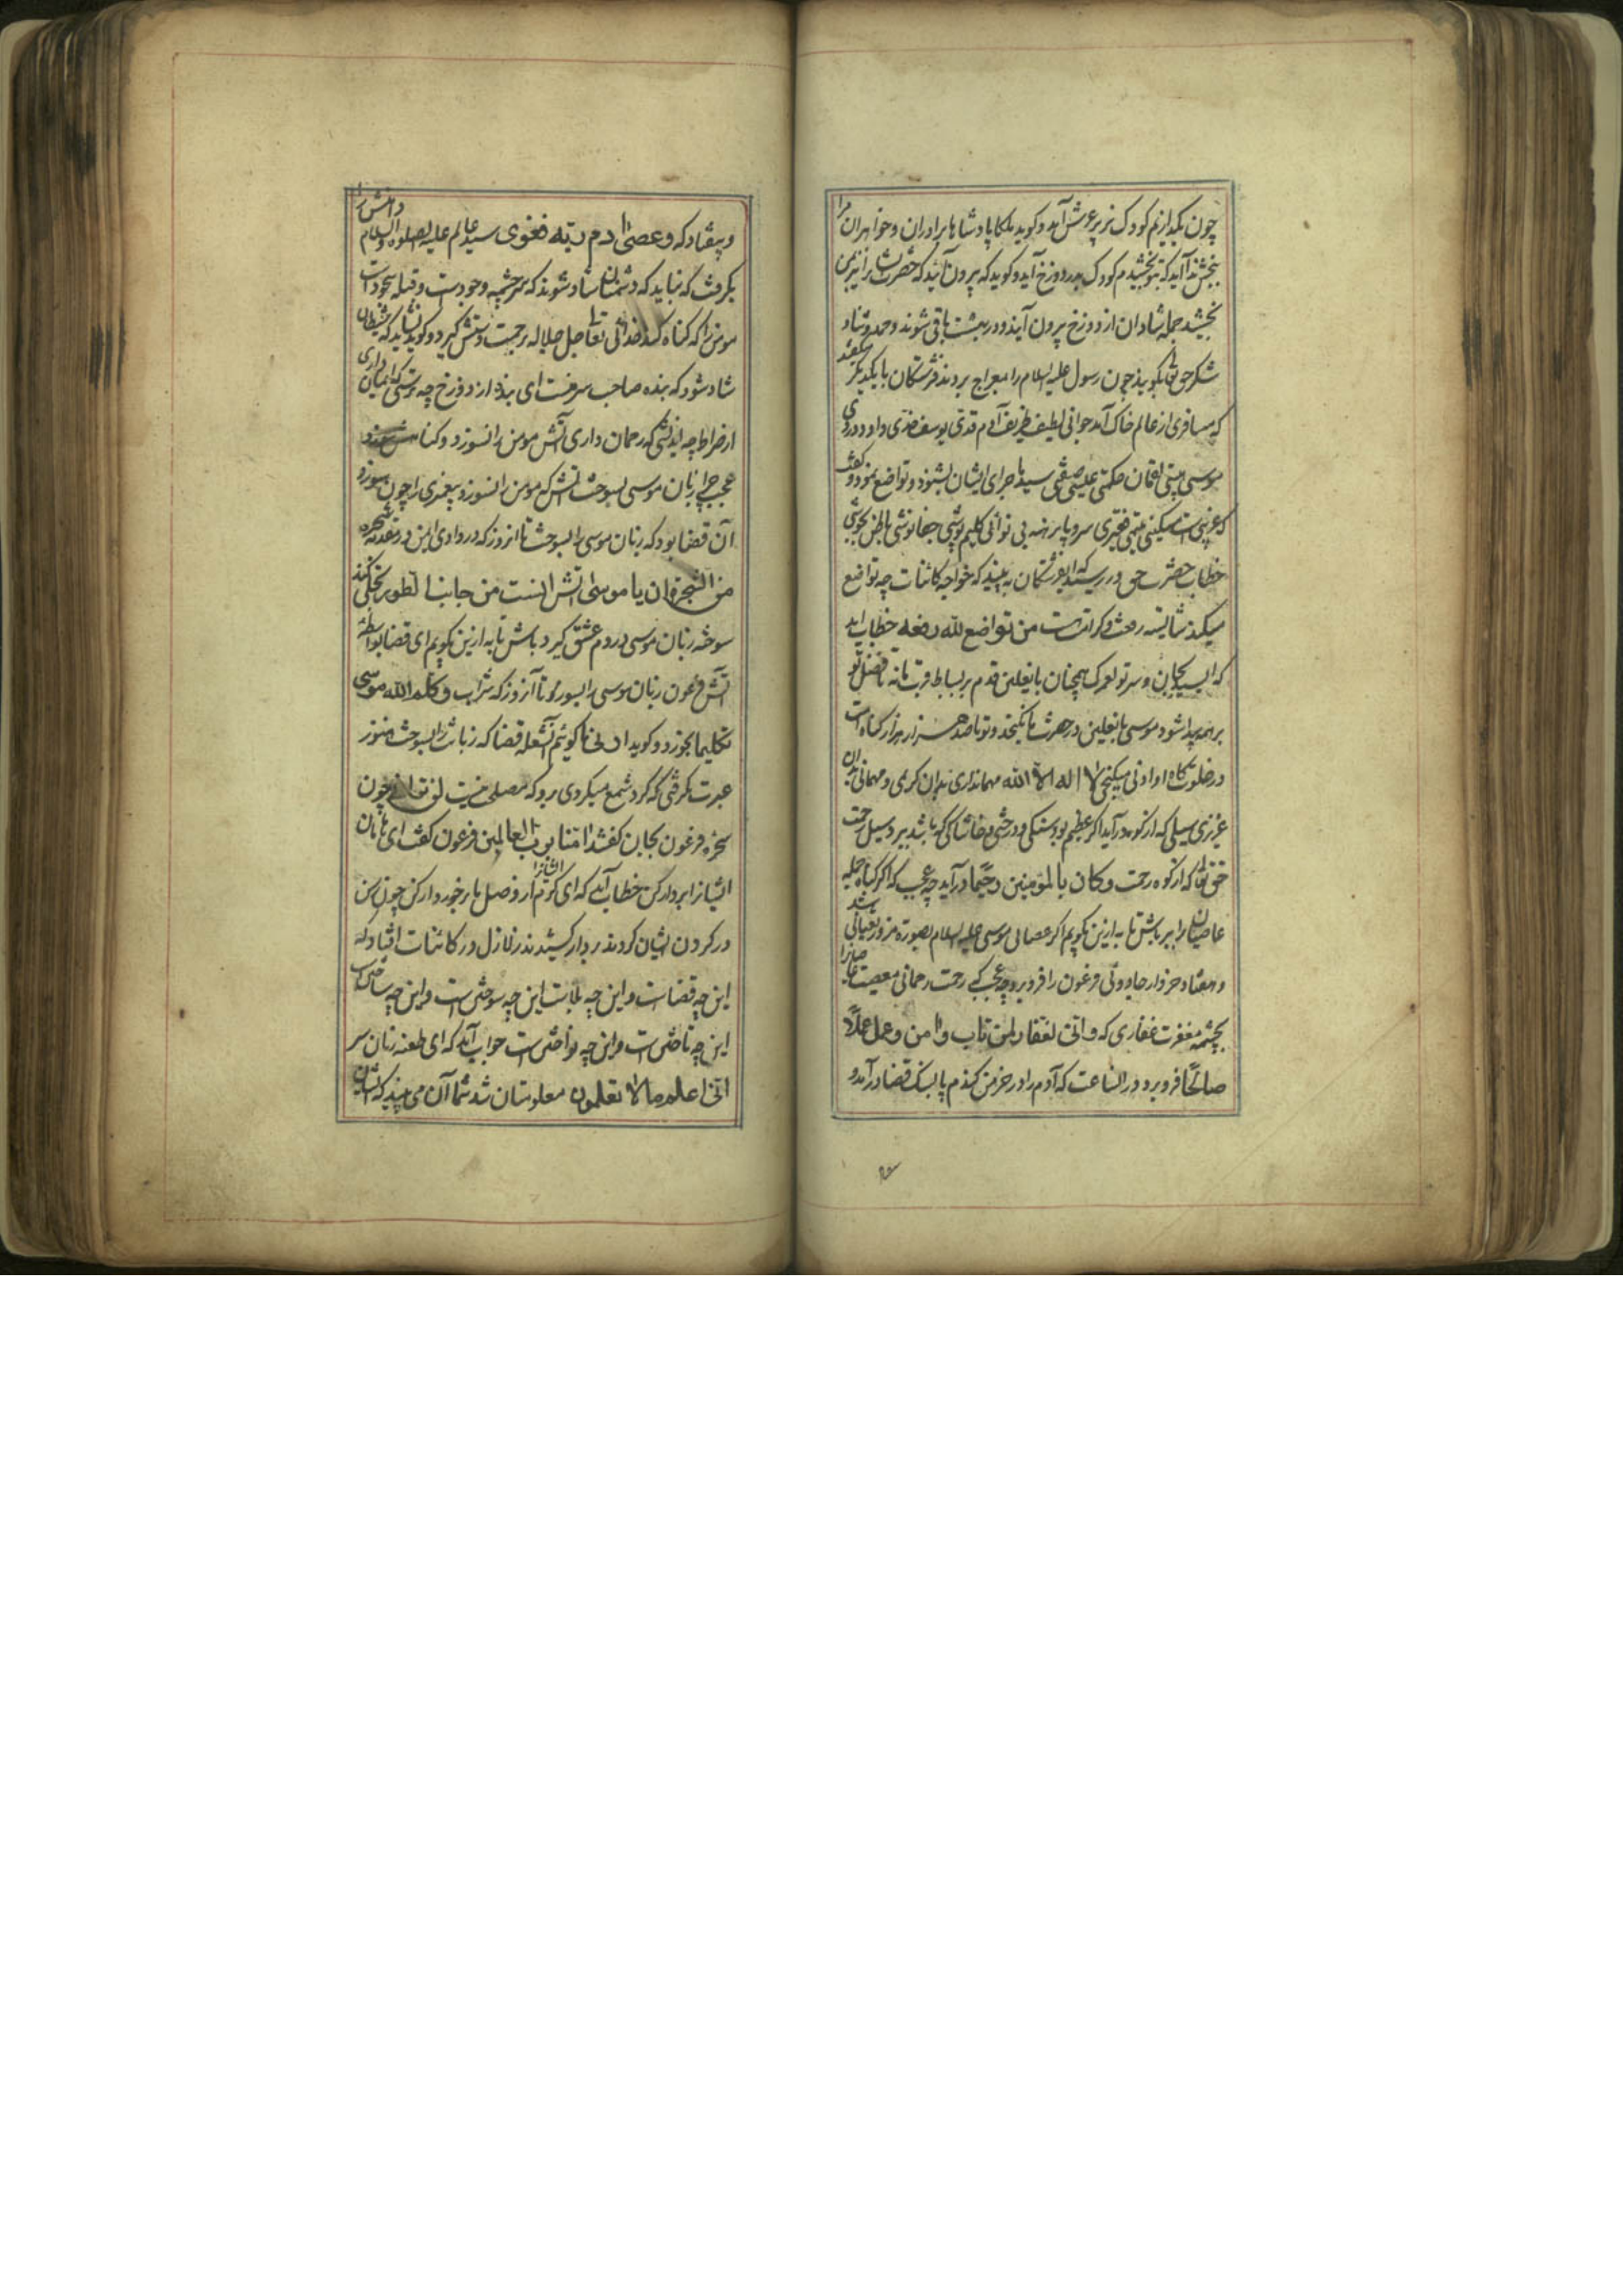 چون بگذاریم کودک نزیر عرش آید و گوید ملکا پادشاها برادران و خواهران مرا
ببخش ندا آید که بتو بخشیدم کودک بدر دوزخ آید و گوید که بیرون آئید که حضرت شما را بمن
بخشید جمله شادان از دوزخ بیرون آیند و در بهشت باقی شوند و حمد و ثنا و
شکر حق تعالی بگویند چون رسول علیه السلام را بمعراج بردند فرشتگان با یکدیگر گفتند
که مسافری از عالم خاک آمد جوانی لطیف ظریف آدم قدی یوسف خدی داود دردی
موسی هیبتی لقمان حکمتی عیسی صفتی سید ماجرای ایشان بشنود و تواضع نمود و گفت
که غریبی است مسکینی یتیمی فقیری سر و پا برهنه بی نوائی گلیم پوشی جفا نوشی
خطاب حضرت حق در رسید که ای فرشتگان به بینید که خواجه کائنات چه تواضع
میکند شایسته رفعت و کرامت است من تواضع لله رفعه خطاب آمد
که ای سید بجان و سر تو لعمرک همچنان با نعلین قدم بر بساط قربت ما نه تا فضل تو
بر همه پیدا شود موسی با نعلین در حضرت ما نگنجد و تو با صد هزار هزار گناه امت
در خلوتگاه او ادنی میگنجی لا اله الا الله مهمانداری بدان کریمی و مهمانی بدان
عزیزی سیلی که از کوه درآید اگر عظیم بود سنگی و درختی و خاشاکی که باشد ببرد سیل رحمت
حق تعالی که از کوه رحمت و کان بالمؤمنین رحیما درآید چه عجب که اگر گناه جمله
عاصیان را ببرد باش تا به ازین بگویم اگر عصای موسی علیه السلام بصورة مزور ثعبانی شد
و هفتاد خروار جادوئی فرعون را فرو برد چه عجب که رحمت رحمانی معصیت عاصیانرا
بچشمه مغفرت غفاری که و انی لغفار لمن تاب و امن و عمل عملا
صالحا فرو برد در الساعت که آدم را در خرمن گندم پا بسنک قضا در آمد و
و بیفتاد که و عصی ادم ربه فغوی سید عالم علیه الصلوة والسلام دامنش را
بگرفت که نباید که دشمنان شاد شوند که سرچشمه وجودست و قبله سجودست
مومن را که گناه کند خدائی تعالی جل جلاله برحمت دستش گیرد و گوید نباید که شیطان
شاد شود که بنده صاحب سرمنست ای بنده از دوزخ چه ترسی که ایمان داری
از صراط چه اندیشی که رحمان داری آتش مومن را نسوزد و گناه
عجب چرا زبان موسی بسوخت آتش که مومن را نسوزد پیغمبری را چون سوزد
آن قضا بود که زبان موسی را بسوخت تا انروز که در وادی ایمن در بقعه شجره
من الشجرة ان یا موسی اتش انست من جانب الطور تجلی کند
سوخته زبان موسی در دم عشق گیرد باش تا به ازین بگویم ای قضا بواسطه
آتش فرعون زبان موسی را بسوز تا آنروز که شراب و کلم الله موسی
تکلیما بخورد و گوید ارنی تا گوئیم آن شعله قضا که زبانت را بسوخت هنوز
عبرت نگرفتی که گرد شمع میگردی برو که مصلحت نیست لن ترانی چون
سحره فرعون بجان گفتند امنا برب العالمین فرعون گفت ای هامان
ایشانرا بردار کن خطاب آمد که ای کرم ایشانرا از وصل ما برخوردار کن چون رسن
در گردن ایشان کردند و بر دار کشیدند زلازل در کائنات افتاد که
این چه قضاست و این چه بلاست این چه سوختن است و این چه ساختن است
این چه تاختن است و این چه نواختن است جواب آمد که ای طعنه زنان سر
انی اعلم مالا تعلمون معلومتان نشد شما آن می بینید که ایشان